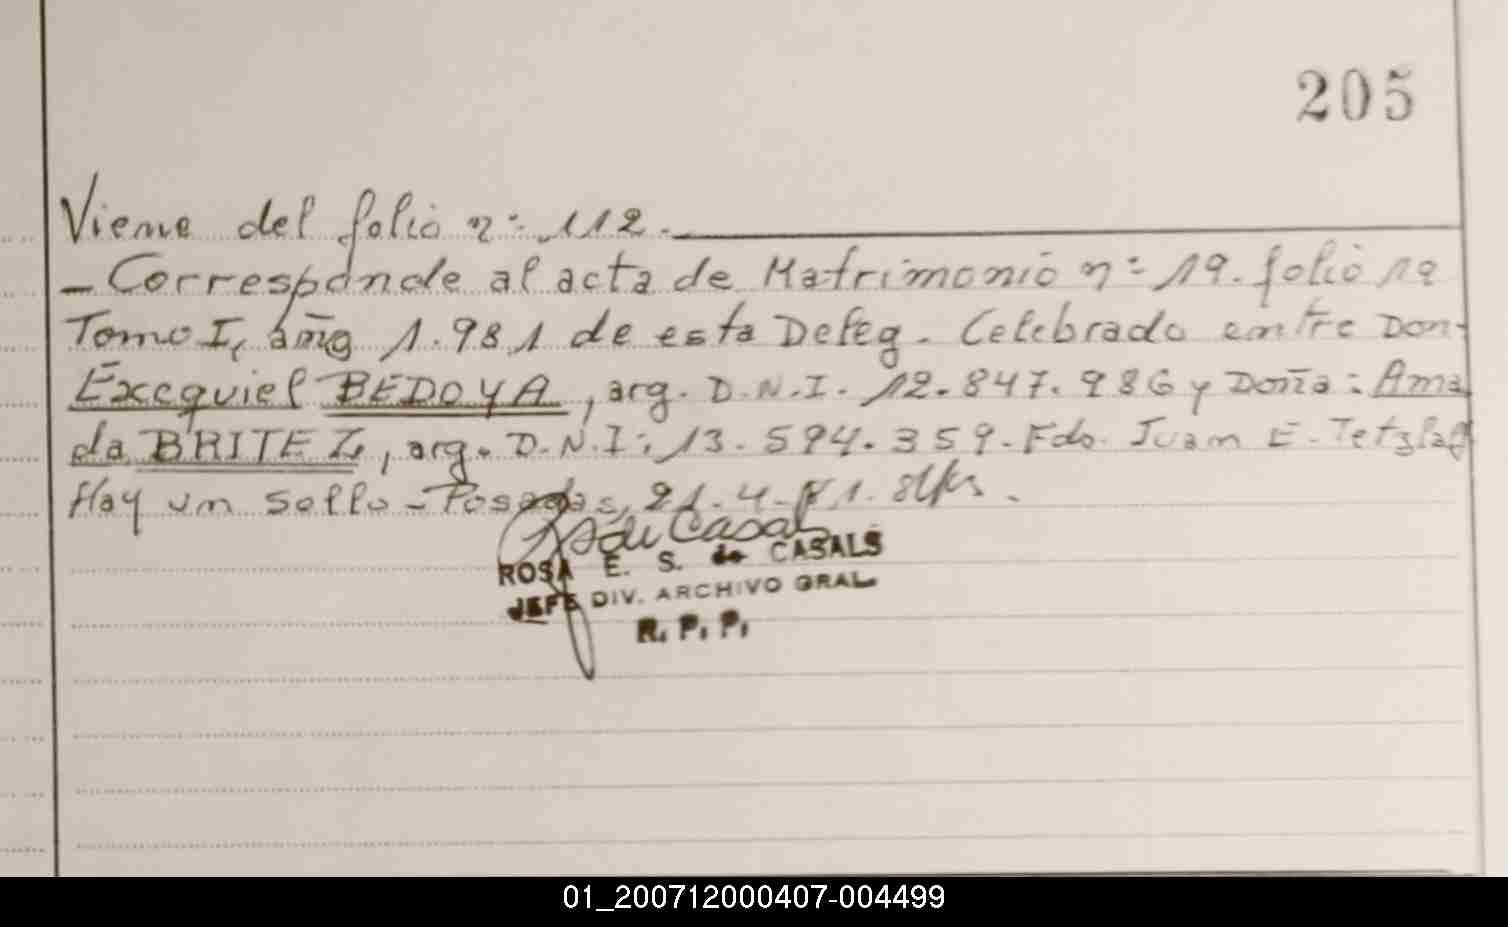 205
Viene del folio n: 112.
- Corresponde al acta de Matrimonio n: 19. folio 19
Tomo I, año 1.981 de esta Deleg. Celebrado entre Don:
Exequiel BEDOYA, arg. D.N.I. 12.847.986 y Doña: Ama
da BRITEZ, arg. D.N.I: 13.594.359. Fdo. Juan E. Tetzlaf
Hay un sello - Posadas, 21.4.81.
ROSA E. S. de CASALS
JEFE DIV. ARCHIVO GRAL
R. P. P.
01_200712000407-004499